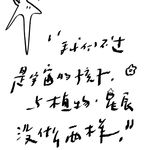 "我们不过
是宇宙的孩子,
与植物、星辰
没什么两样。"